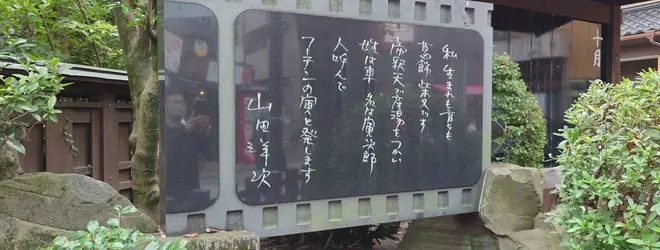 十月
私 生まれも育ちも
葛飾 柴又です
帝釈天で産湯をつかい
姓は車 名は寅次郎
人呼んで
フーテンの寅と発します
山田洋次